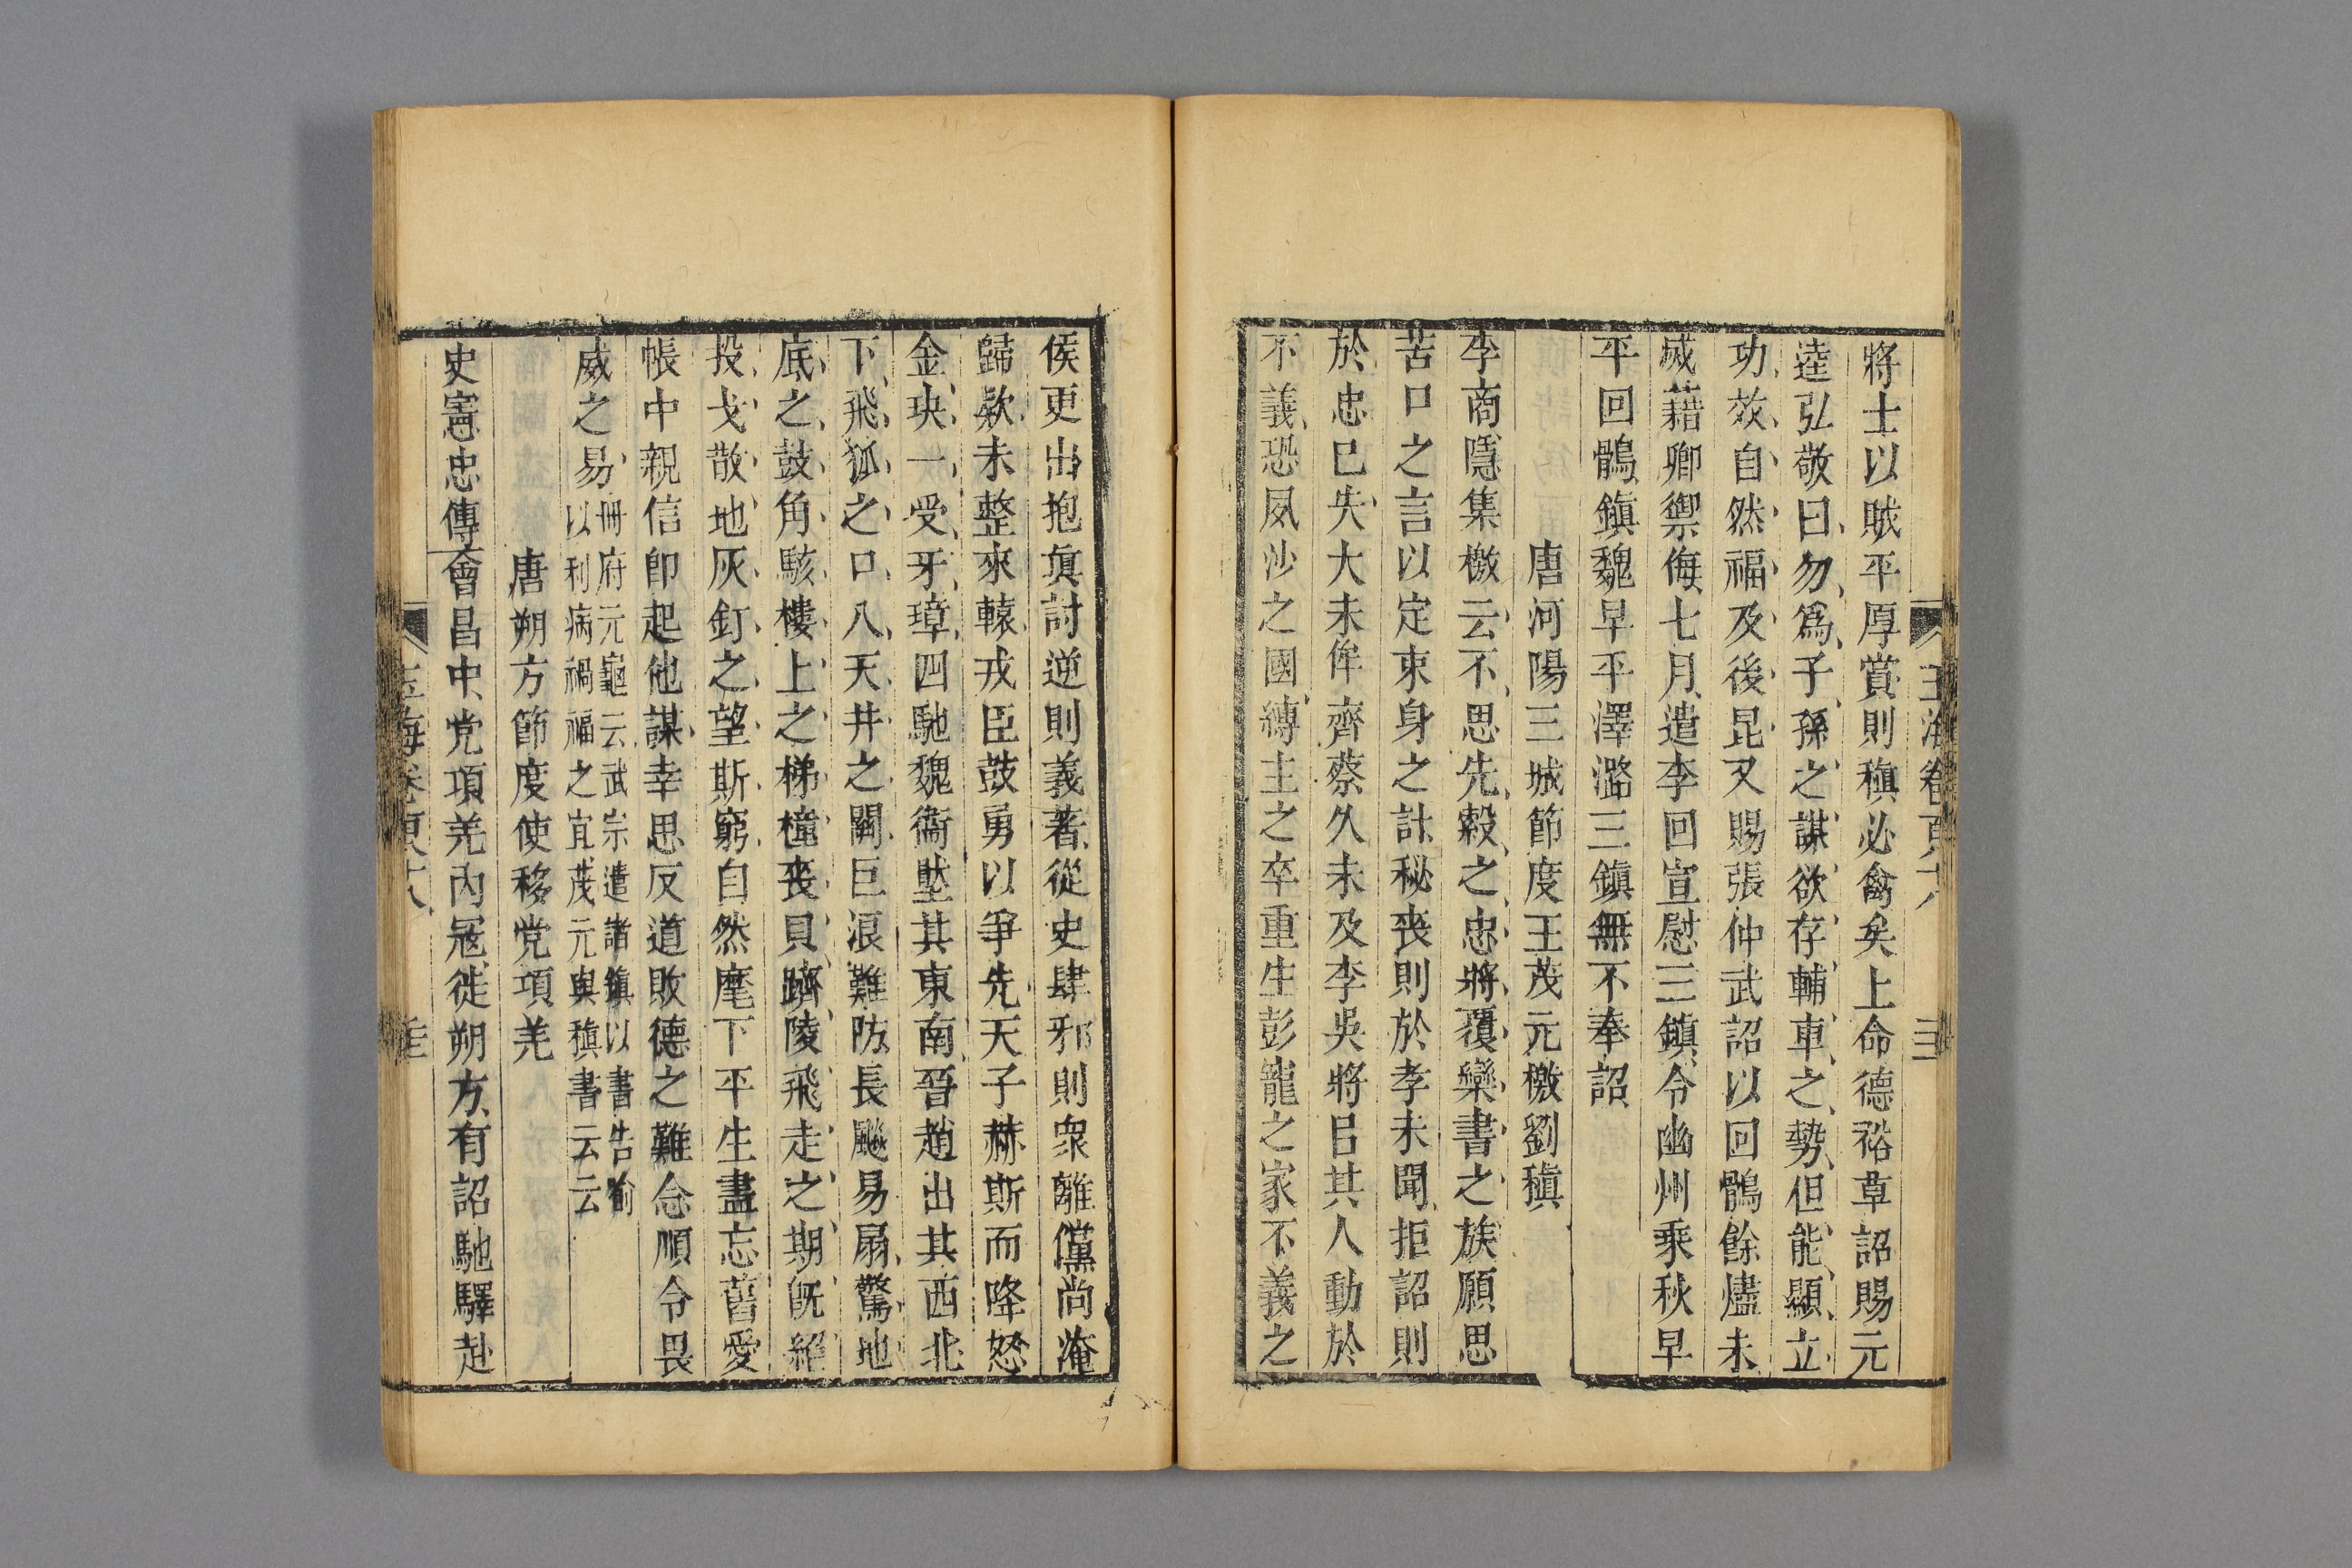 將士以賊平厚賞則稹必禽矣上命德裕草詔賜元
逵弘敬曰勿爲子孫之謀欲存輔車之勢但能顯立
功效自然福及後昆又賜張仲武詔以回鶻餘燼未
滅藉卿禦侮七月遣李回宣慰三鎮令幽州乘秋早
平回鶻鎮魏早平澤潞三鎮無不奉詔
唐河陽三城節度王茂元檄劉稹
李商隱集檄云不思先縠之忠將覆欒書之族願思
苦口之言以定束身之計秘喪則於孝未聞拒詔則
於忠已失大未侔齊蔡久未及李吳將吕其人動於
不義恐夙沙之國縛主之卒重生彭寵之家不義之
侯更出抱眞討逆則義著從史肆邪則衆離儻尚淹
歸欵未整來轅戎臣鼓勇以爭先天子赫斯而降怒
金玦一受牙璋四馳魏衞壓其東南晉趙出其西北
下飛狐之口入天井之關巨浪難防長飈易扇驚地
底之鼓角駭樓上之梯橦喪貝躋陵飛走之期旣絕
投戈散地灰釘之望斯窮自然麾下平生盡忘舊愛
帳中親信卽起他謀幸思反道敗德之難念順令畏
威之易
冊府元龜云武宗遣諸鎮以書告喻
以利病禍福之宜茂元與稹書云云
唐朔方節度使移党項羌
史憲忠傳會昌中党項羌內寇徙朔方有詔馳驛赴